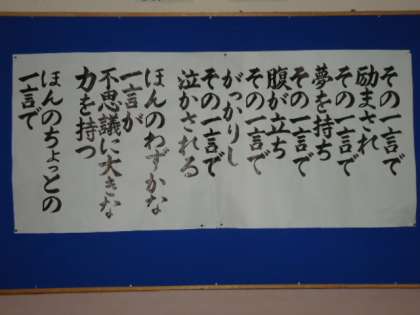 その一言で
励まされ
その一言で
夢を持ち
その一言で
腹が立ち
その一言で
がっかりし
その一言で
泣かされる
ほんのわずかな
一言が
不思議に大きな
力を持つ
ほんのちょっとの
一言で